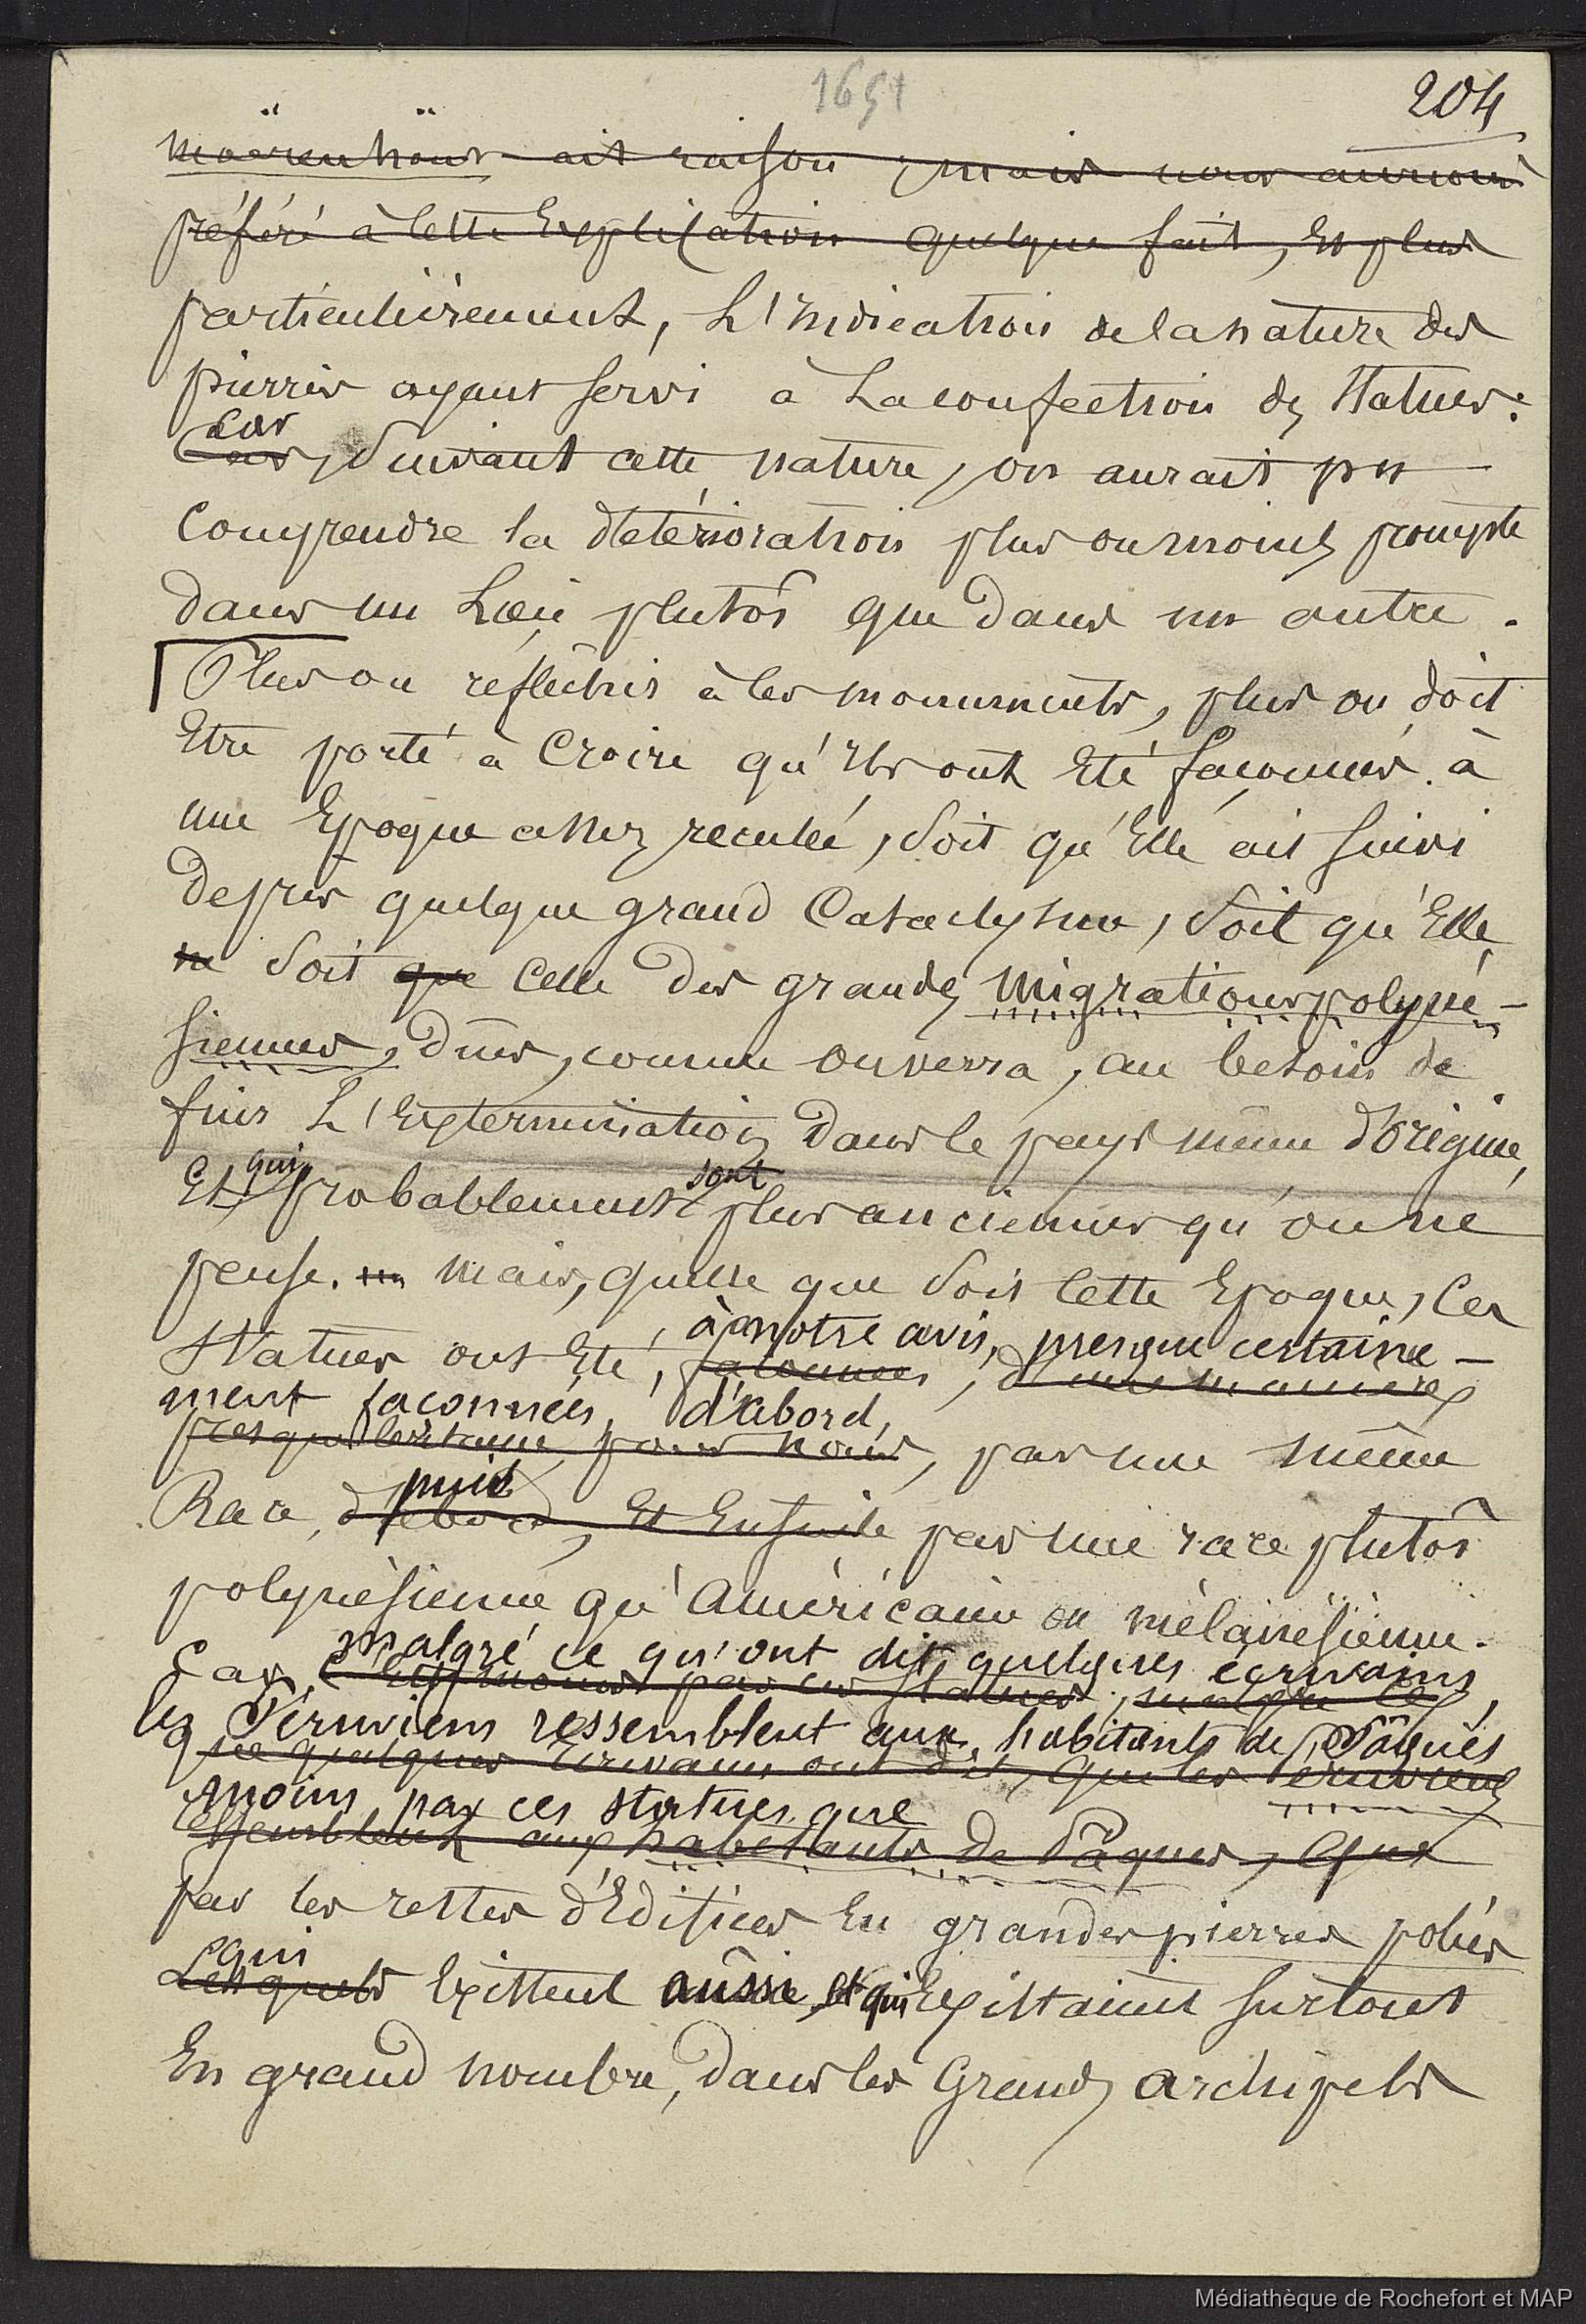 1651
204
Moërenhoüt ait raison ; mais nous aurions
préféré à cette Explication quelque fait, Et plus
particulièrement, L'Indication de la nature des
pierres ayant servi à La confection des Statues :
car
Car, Suivant cette nature, on aurait pu
Comprendre la détérioration plus ou moins prompte
dans un Lieu plutôt que dans un autre.
Plus on réfléchis à ces monuments, plus on doit
Etre porté à Croire qu'Ils ont Eté façonnés à
une Epoque assez reculée, Soit qu'Elle ait suivi
De près quelque grand Cataclysme, Soit qu'Elle
ne Soit que Celle des grandes migrations polyné-
siennes, Dûes, comme on verra, au besoin de
fuir L'Extermination Dans le pays même d'Origine,
Et qui probablement sont plus anciennes qu'on ne
pense. Mais, quelle que Soit Cette Epoque, Ces
à notre avis, presque certaine-
Statues ont Eté, façonnées, d'une manière
ment façonnées, d'abord,
presque Certaine pour nous, par une même
puis
Race, d'abord, Et Ensuite par une race plutôt
polynésienne qu'Américaine ou mélanésienne.
malgré ce qu'ont dit quelques écrivains,
Car,
les Péruviens ressemblent aux habitants de Pâques
que quelques Ecrivains ont dit, que les Péruviens
moins par ces statues que
ressemblent aux habitants de Pâques, que
par les restes d'Edifices En grandes pierres polies
qui
Lesquels Existent aussi, et qui Existaient surtout
En grand nombre, Dans les Grands archipels
Médiathèque de Rochefort et MAP